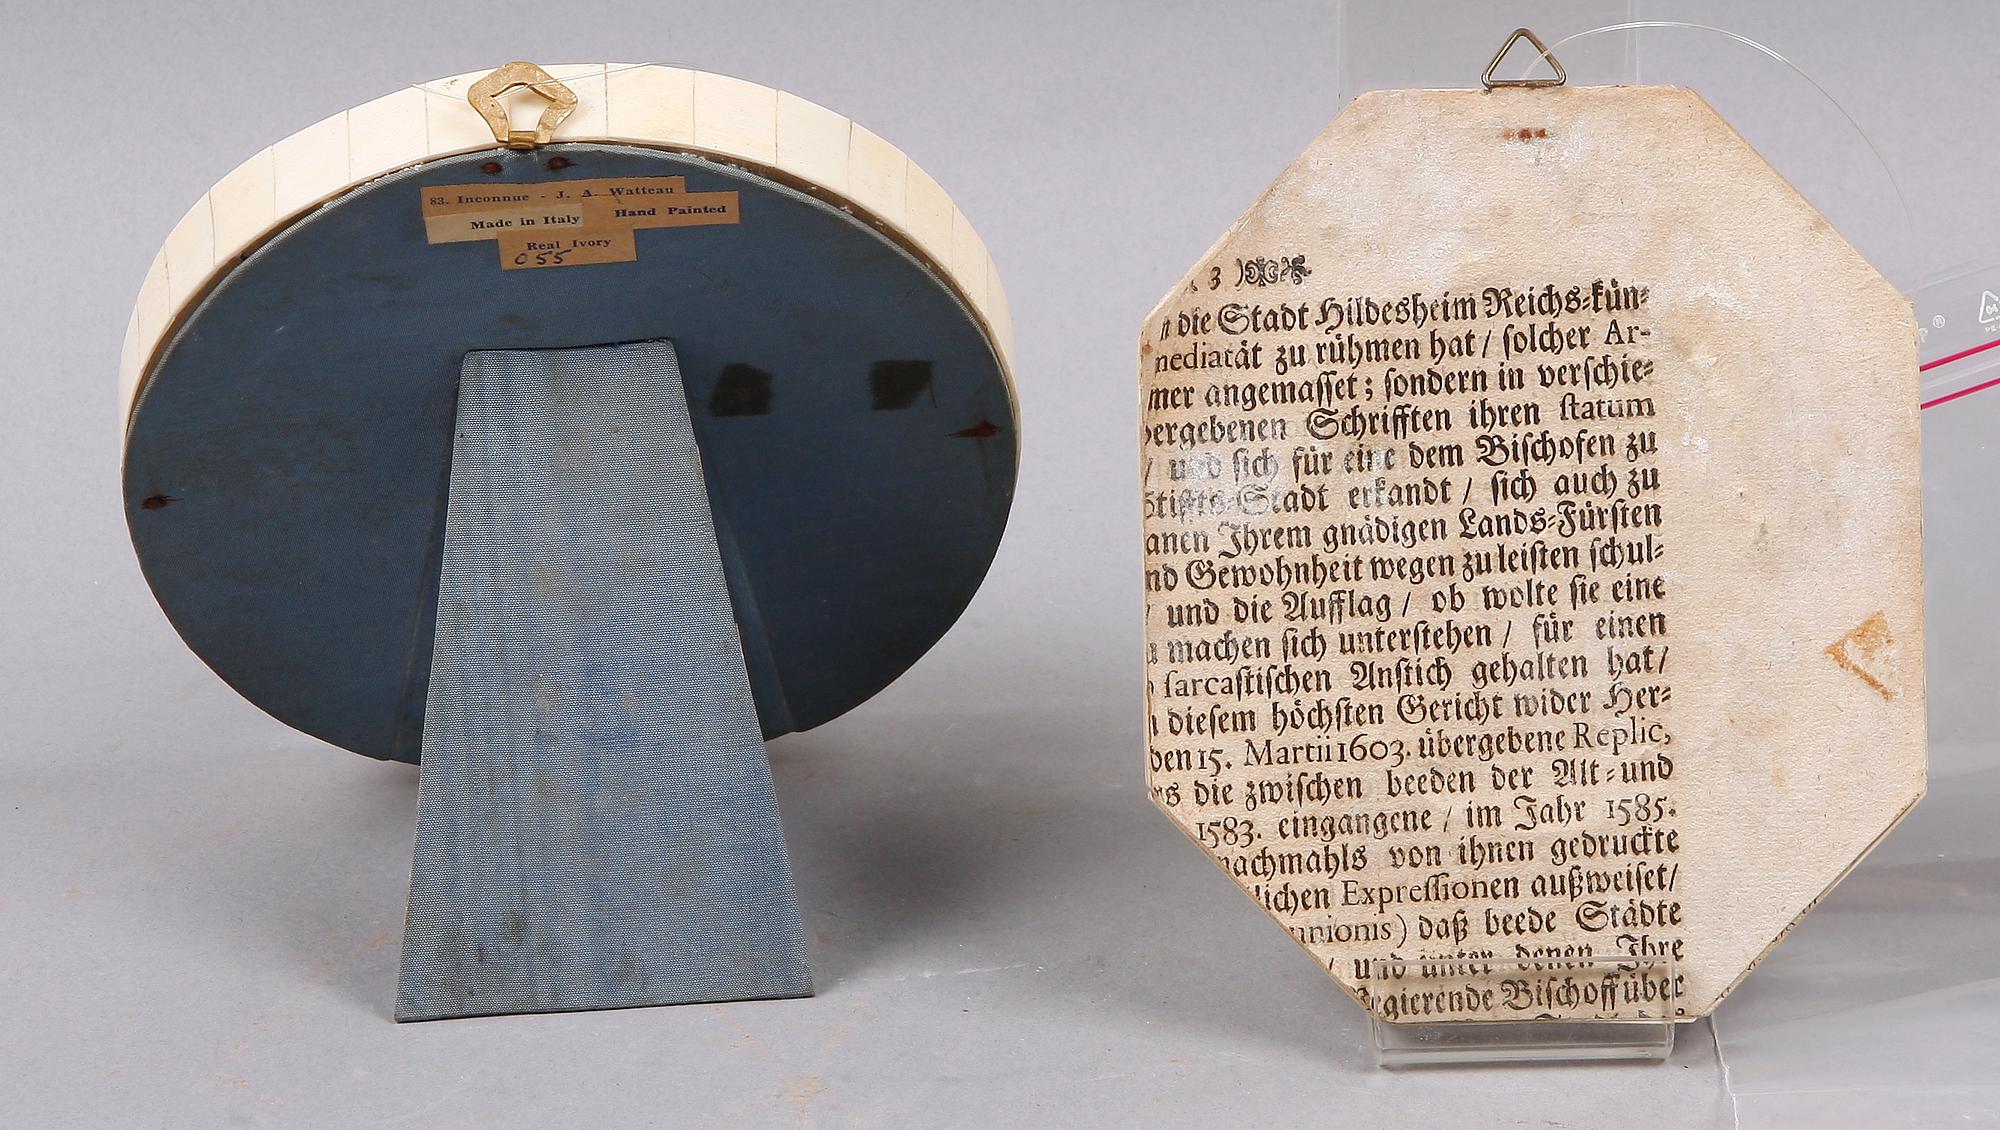 83. Inconnue - J. A. Watteau
Made in Italy
Hand Painted
Real Ivory
055
3 )
die Stadt Hildesheim Reichs-kün-
mediatät zu rühmen hat / solcher Ar-
mer angemasset; sondern in verschie-
ergebenen Schrifften ihren statum
/ und sich für eine dem Bischofen zu
Stiffts-Stadt erkandt / sich auch zu
anen Ihrem gnädigen Lands-Fürsten
nd Gewohnheit wegen zu leisten schul-
/ und die Aufflag / ob wolte sie eine
machen sich unterstehen / für einen
sarcastischen Anstich gehalten hat/
diesem höchsten Gericht wider Her-
den 15. Martii 1603. übergebene Replic,
die zwischen beeden der Alt-und
1583. eingangene / im Jahr 1585.
nachmahls von ihnen gedruckte
lichen Expressionen außweiset/
unionis) daß beede Städte
/ und unter denen Ihre
Regierende Bischoff über